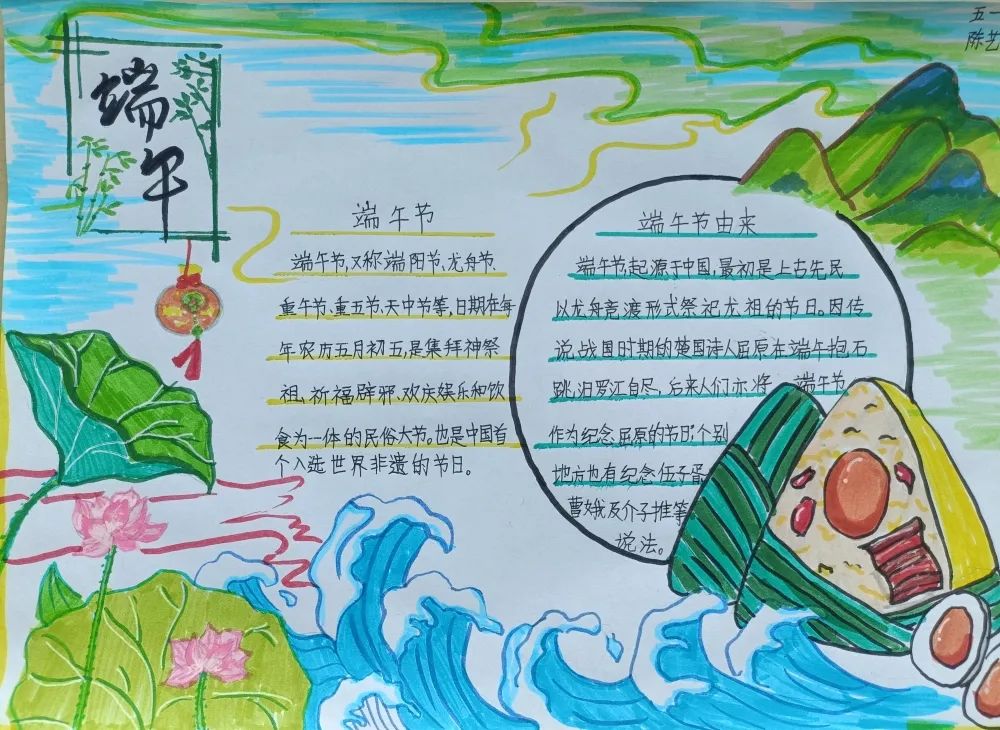 五一
陈艺
端午
端午节
端午节,又称端阳节、龙舟节、
重午节、重五节、天中节等,日期在每
年农历五月初五,是集拜神祭
祖、祈福辟邪、欢庆娱乐和饮
食为一体的民俗大节。也是中国首
个入选世界非遗的节日。
端午节由来
端午节,起源于中国,最初是上古先民
以龙舟竞渡形式祭祀龙祖的节日。因传
说战国时期的楚国诗人屈原在端午抱石
跳汨罗江自尽,后来人们亦将 端午节
作为纪念屈原的节日;个别
地方也有纪念伍子胥
曹娥及介子推等
说法。